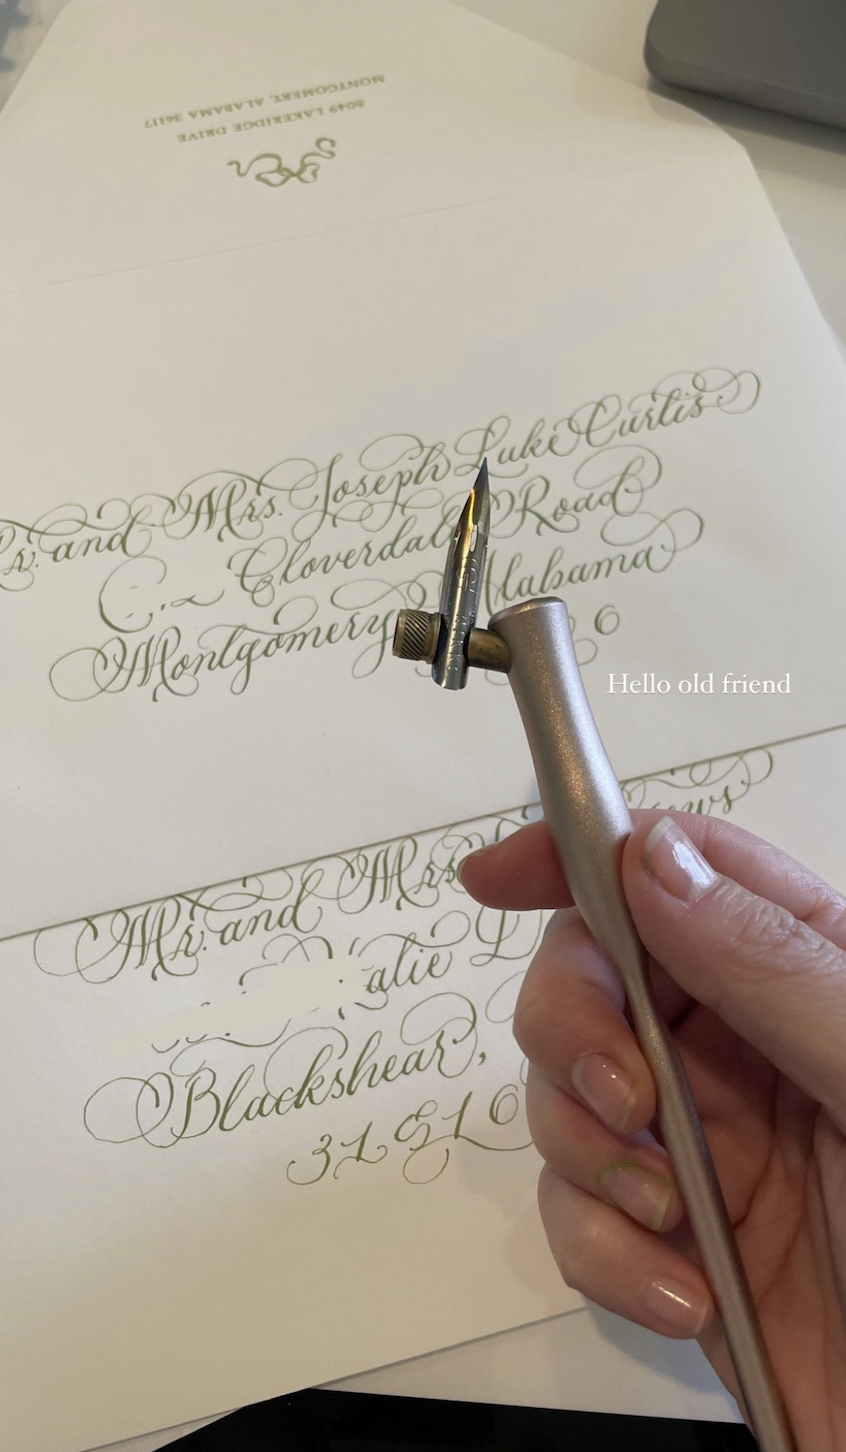 8049 LAKERIDGE DRIVE
MONTGOMERY, ALABAMA 36117
r. and Mrs. Joseph Luke Curtis
Cloverdale Road
Montgomery Alabama
6
Hello old friend
Mr. and Mrs
alie
Blackshear,
31516